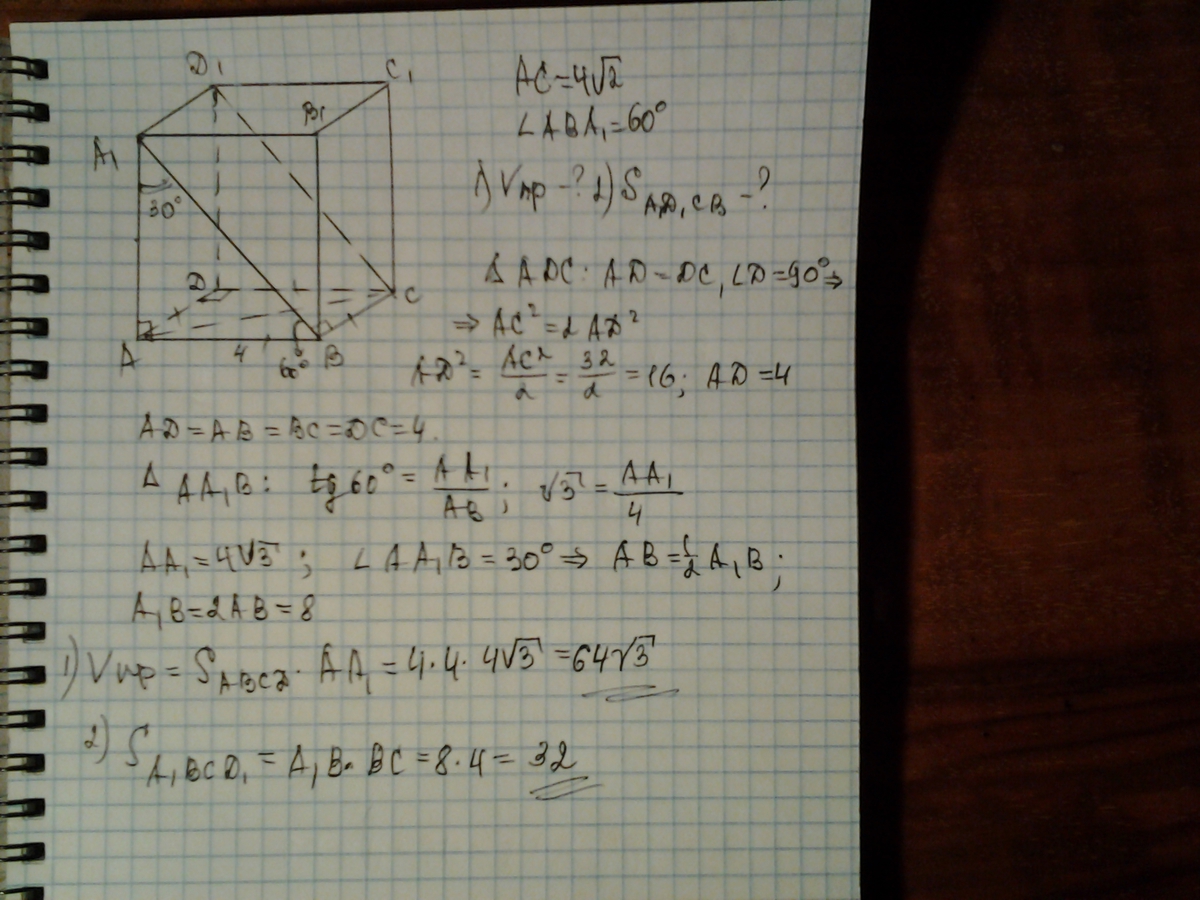 D₁
C₁
B₁
A₁
30°
D
C
A
4
60°
B
AC=4√2
∠ABA₁=60°
1) Vпр -? 2) S_A₁D₁CB -?
Δ ADC: AD=DC, ∠D=90°⇒
⇒ AC²=2AD²
AD²= AC²/2 = 32/2 =16; AD=4
AD=AB=BC=DC=4.
Δ AA₁B: tg60°= AA₁/AB; √3 = AA₁/4
AA₁=4√3; ∠AA₁B=30°⇒ AB=1/2 A₁B;
A₁B=2AB=8
1) Vпр = S_ABCD · AA₁ = 4·4·4√3 =64√3
2) S_A₁BCD₁ = A₁B·BC=8·4= 32